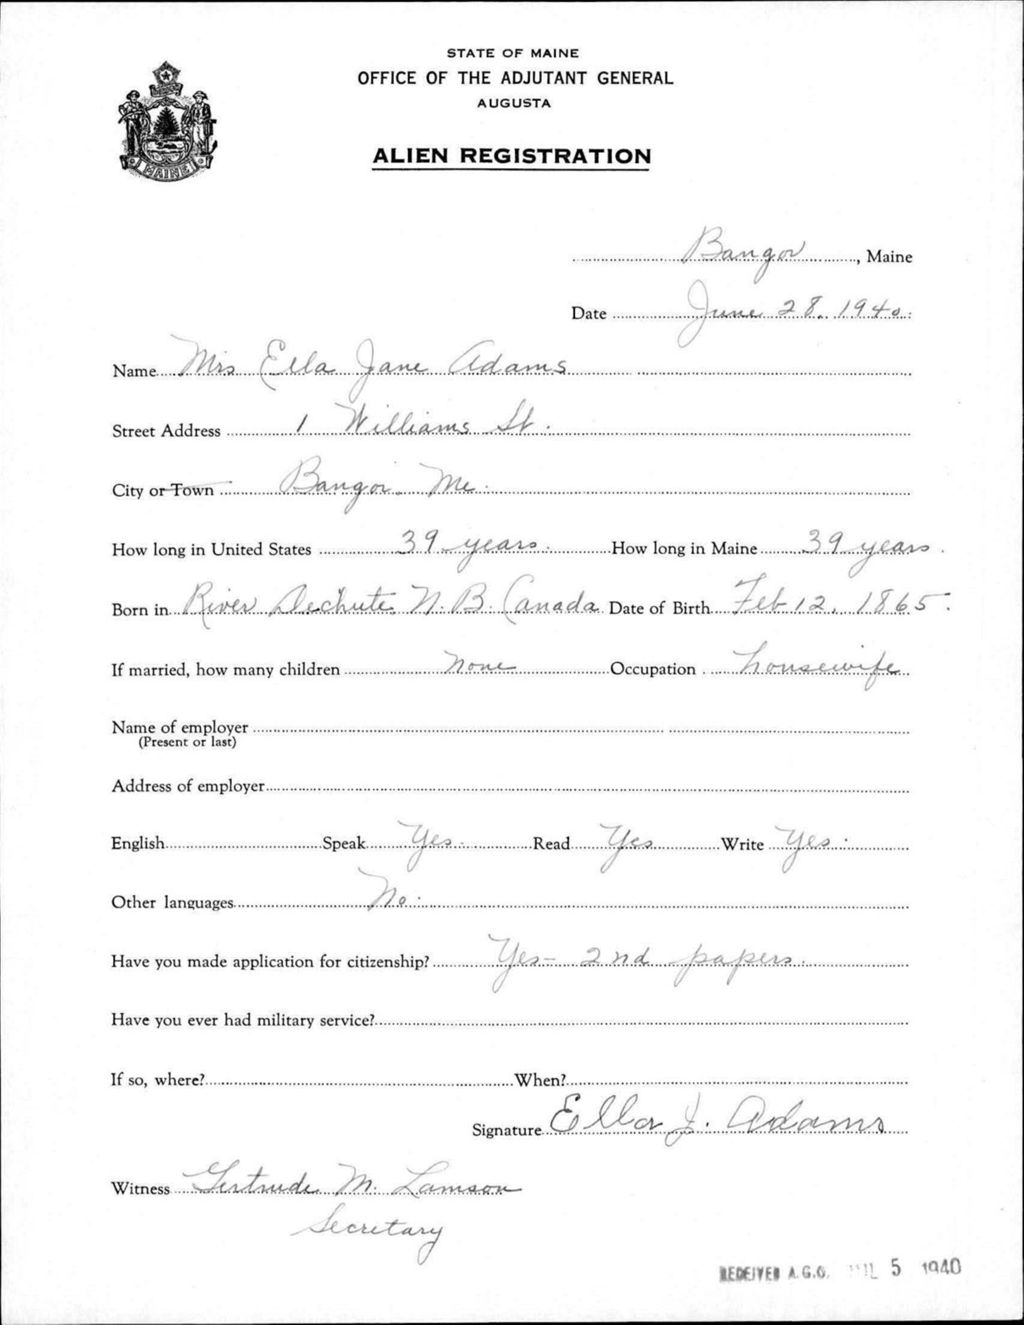 STATE OF MAINE
OFFICE OF THE ADJUTANT GENERAL
AUGUSTA
ALIEN REGISTRATION
MAINE
Bangor, Maine
Date June 28, 1940.
Name Mrs Ella Jane Adams
Street Address 1 Williams St.
City or Town Bangor Me.
How long in United States 39 years. How long in Maine 39 years.
Born in River Dechute N.B. Canada Date of Birth Feb 12, 1865.
If married, how many children None Occupation housewife
Name of employer
(Present or last)
Address of employer
English Speak Yes. Read Yes Write Yes.
Other languages No.
Have you made application for citizenship? Yes- 2nd papers.
Have you ever had military service?
If so, where? When?
Signature Ella J. Adams
Witness Gertrude M. Lamson
Secretary
RECEIVED A.G.O. JUL 5 1940